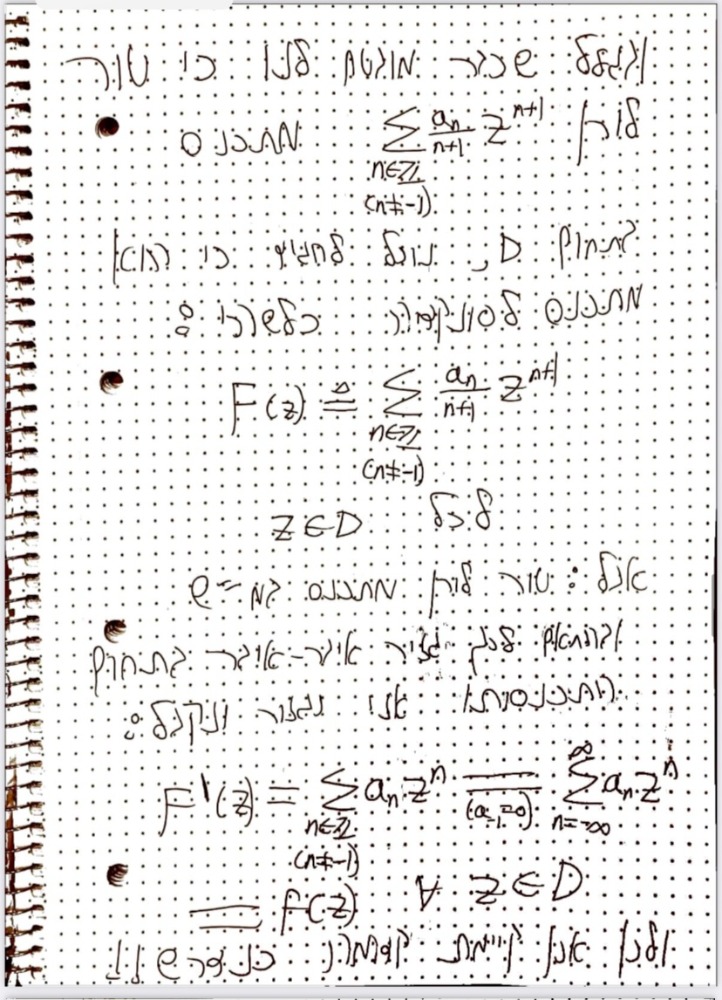 ובגלל שכבר מובטח לנו כי טור
לורן $\sum_{\substack{n\in\mathbb{Z} \\ (n\neq-1)}} \frac{a_n}{n+1} z^{n+1}$ מתכנס
בתחום D, נוכל להגדיר כי הוא
מתכנס לפונקציה כלשהי:
$F(z) \triangleq \sum_{\substack{n\in\mathbb{Z} \\ (n\neq-1)}} \frac{a_n}{n+1} z^{n+1}$
לכל $z\in D$
אבל: טור לורן מתכנס במ"ש
ובהתאם לכך גזיר איבר-איבר בתחום
התכנסותו אז נגזור ונקבל:
$F'(z) = \sum_{\substack{n\in\mathbb{Z} \\ (n\neq-1)}} a_n z^n \underset{(a_{-1}=0)}{=} \sum_{n=-\infty}^{\infty} a_n z^n$
$= f(z) \quad \forall \; z\in D$
ולכן אכן קיימת קדומה כנדרש!!